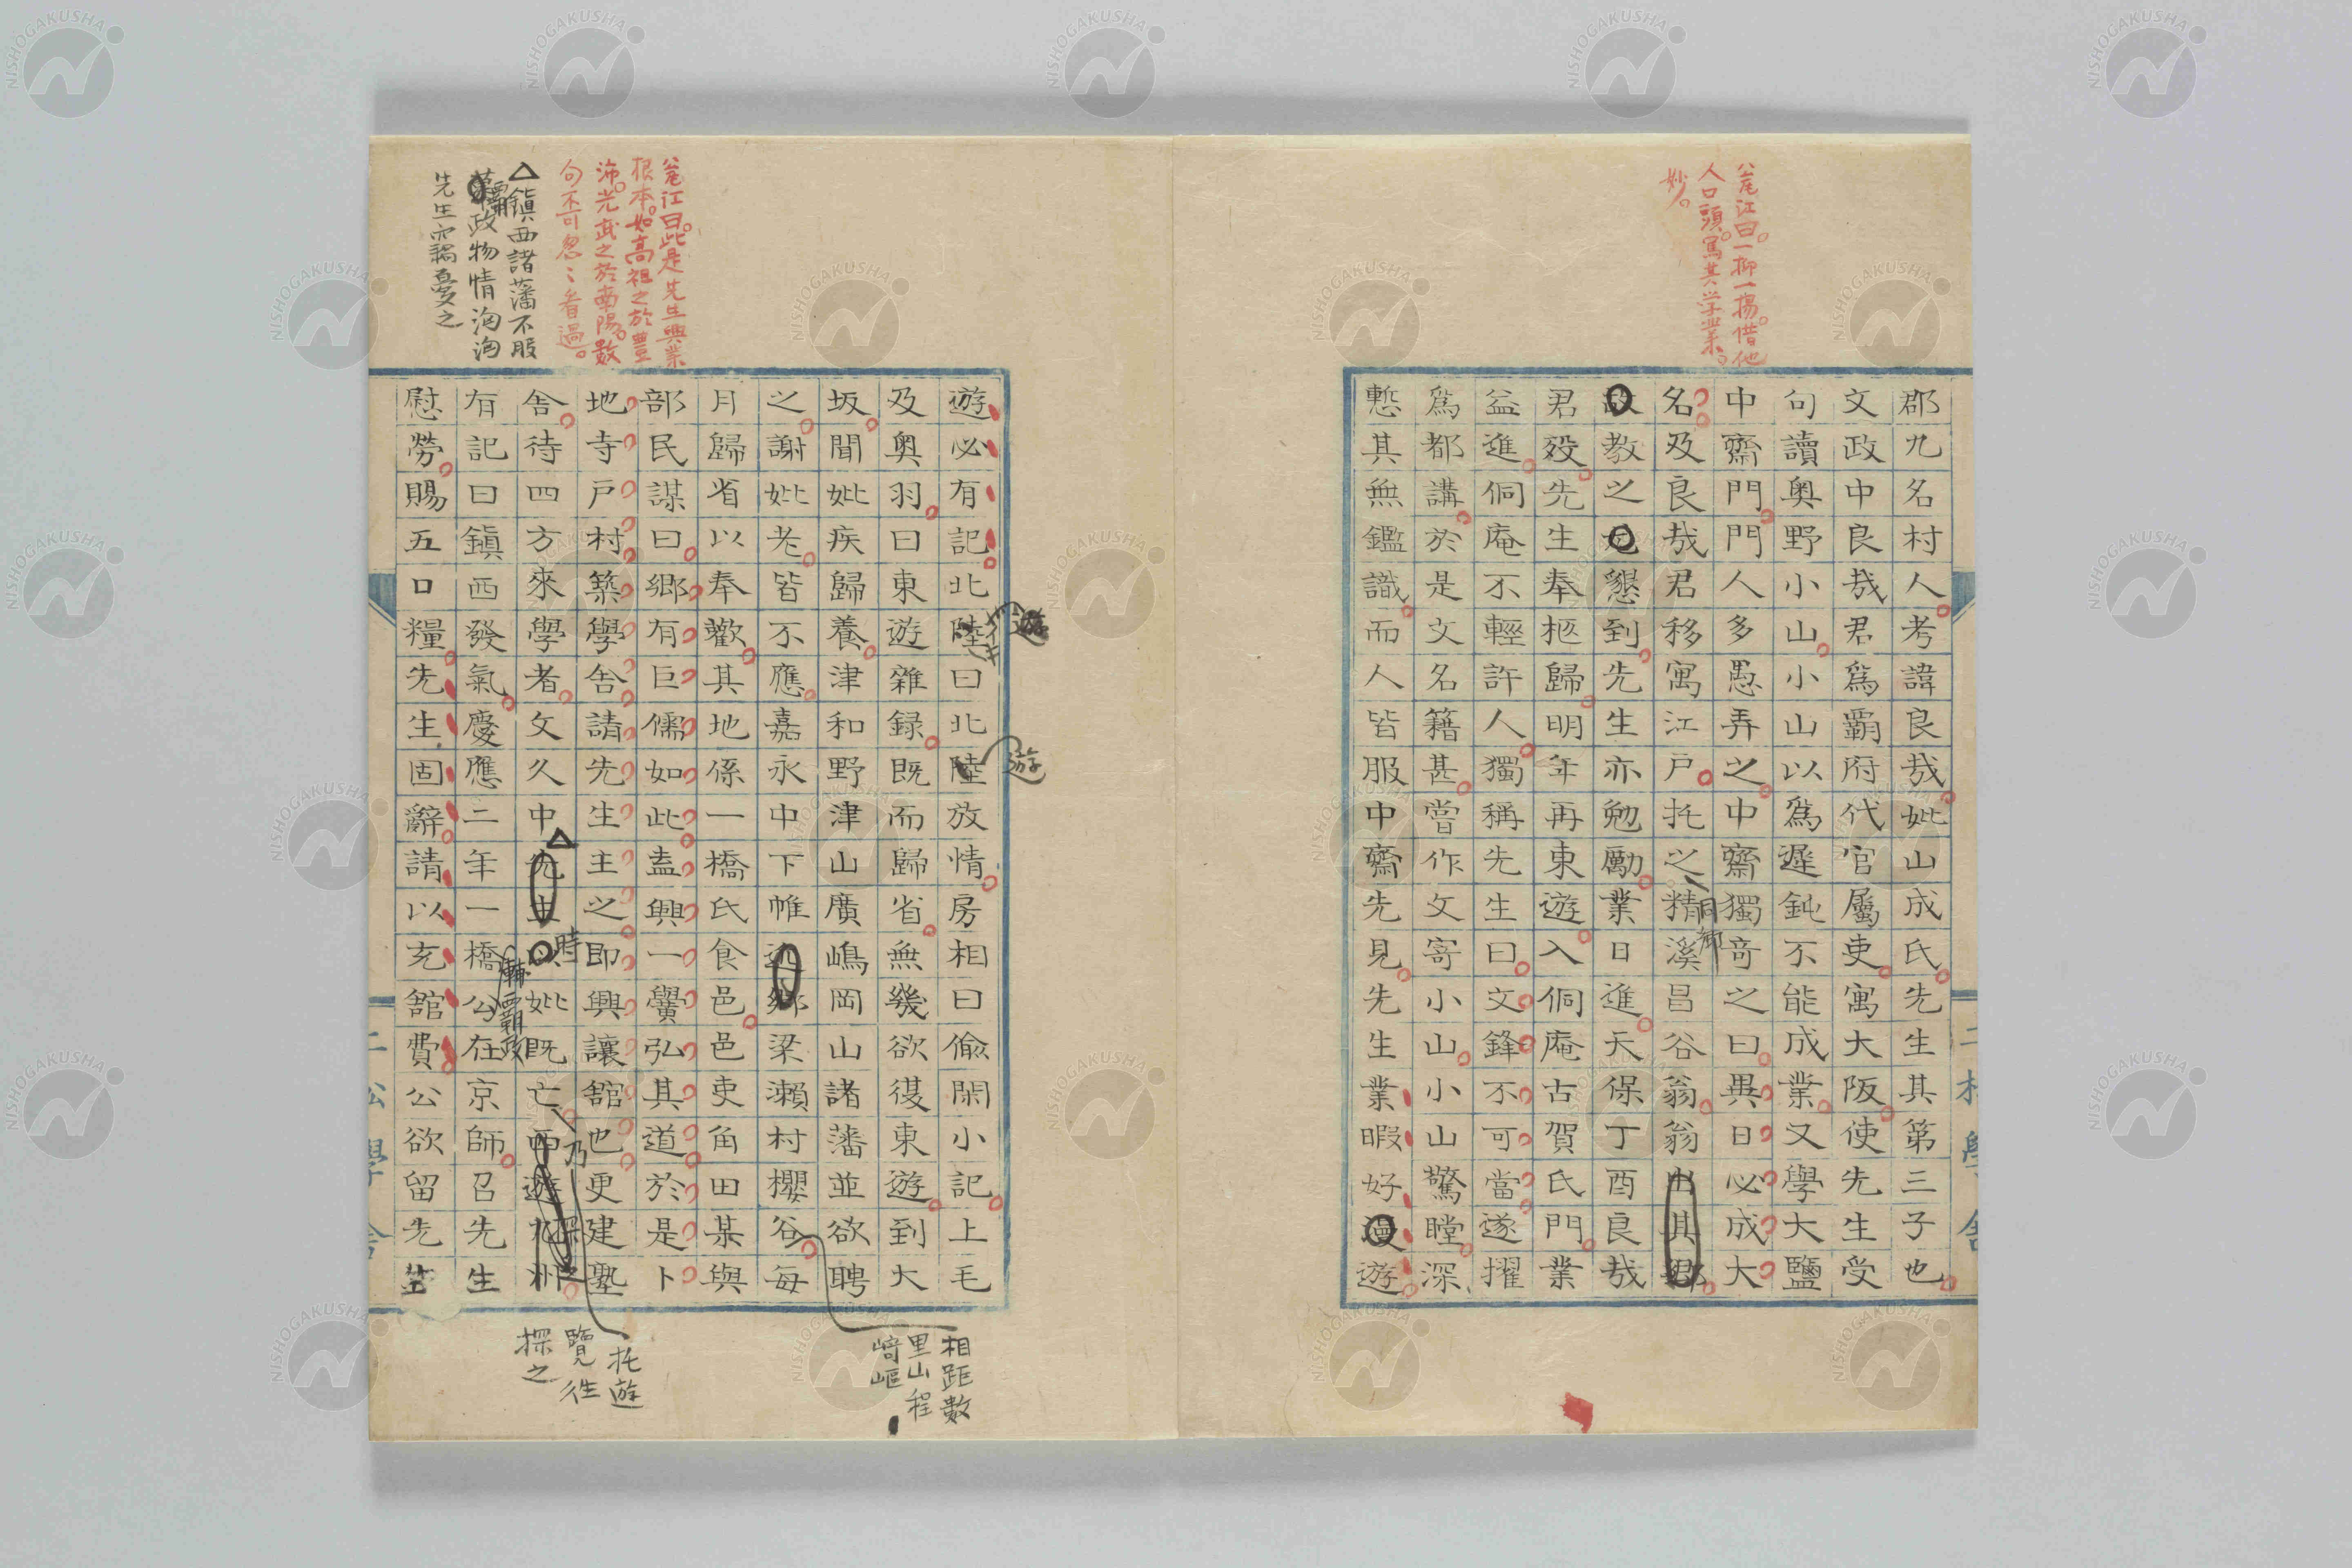 翁尾江曰一抑一揚借他
人口頭寫其学業
妙
郡九名村人考諱良哉妣山成氏先生其第三子也
文政中良哉君爲霸府代官屬吏寓大阪使先生受
句讀奥野小山小山以爲遲鈍不能成業又學大鹽
中齋門門人多愚弄之中齋獨奇之曰異日必成大
名及良哉君移寓江戸托之精溪昌谷翁翁
同鄉
教之懇到先生亦勉勵業日進天保丁酉良哉
君歿先生奉柩歸明年再東遊入侗庵古賀氏門業
益進侗庵不輕許人獨稱先生曰文鋒不可當遂擢
爲都講於是文名籍甚嘗作文寄小山小山驚瞠深
慙其無鑑識而人皆服中齋先見先生業暇好遊
遊必有記北陸曰北陸放情房相曰偸閑小記上毛
遊
及奥羽曰東遊雜録既而歸省無幾欲復東遊到大
坂聞妣疾歸養津和野津山廣嶋岡山諸藩並欲聘
相距數
里山程
崎嶇
之謝妣老皆不應嘉永中下帷梁瀬村櫻谷每
月歸省以奉歡其地係一橋氏食邑邑吏角田某與
部民謀曰鄉有巨儒如此盍興一黌弘其道於是卜
地寺戸村築學舍請先生主之即興讓舘也更建塾
舍待四方來學者文久中妣既亡
時
乃
托遊
覽往
探之
有記曰鎭西發氣慶應二年一橋公在京師召先生
輔霸政
慰勞賜五口糧先生固辭請以充舘費公欲留先生
翁尾江曰此是先生興業
根本如高祖之於豊
沛光武之於南陽數
句不可忽〻看過
△鎭西諸藩不服
霸政物情洶洶
先生亦竊憂之
二松學舍